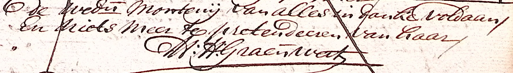 de wedu Montenij van alles in dank voldaan
en niets meer te pretendeeren van haar
W: H: Graeuwert